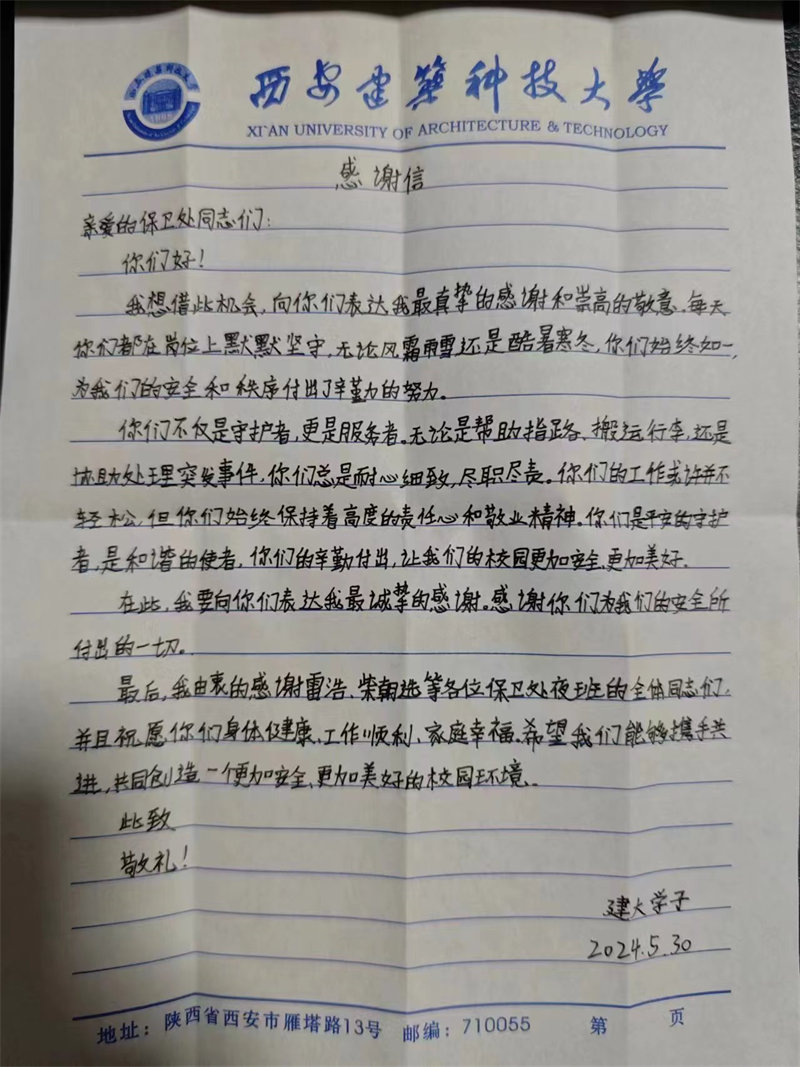 西安建筑科技大学
XI'AN UNIVERSITY OF ARCHITECTURE & TECHNOLOGY
感谢信
亲爱的保卫处同志们:
你们好!
我想借此机会,向你们表达我最真挚的感谢和崇高的敬意。每天
你们都在岗位上默默坚守,无论风霜雨雪还是酷暑寒冬,你们始终如一,
为我们的安全和秩序付出了辛勤的努力。
你们不仅是守护者,更是服务者。无论是帮助指路、搬运行李,还是
协助处理突发事件,你们总是耐心细致,尽职尽责。你们的工作或许并不
轻松,但你们始终保持着高度的责任心和敬业精神。你们是平安的守护
者,是和谐的使者,你们的辛勤付出,让我们的校园更加安全、更加美好。
在此,我要向你们表达我最诚挚的感谢。感谢你们为我们的安全所
付出的一切。
最后,我由衷的感谢雷浩、柴朝选等各位保卫处夜班的全体同志们,
并且祝愿你们身体健康、工作顺利、家庭幸福。希望我们能够携手共
进,共同创造一个更加安全、更加美好的校园环境。
此致
敬礼!
建大学子
2024.5.30
地址:陕西省西安市雁塔路13号 邮编:710055 第 页